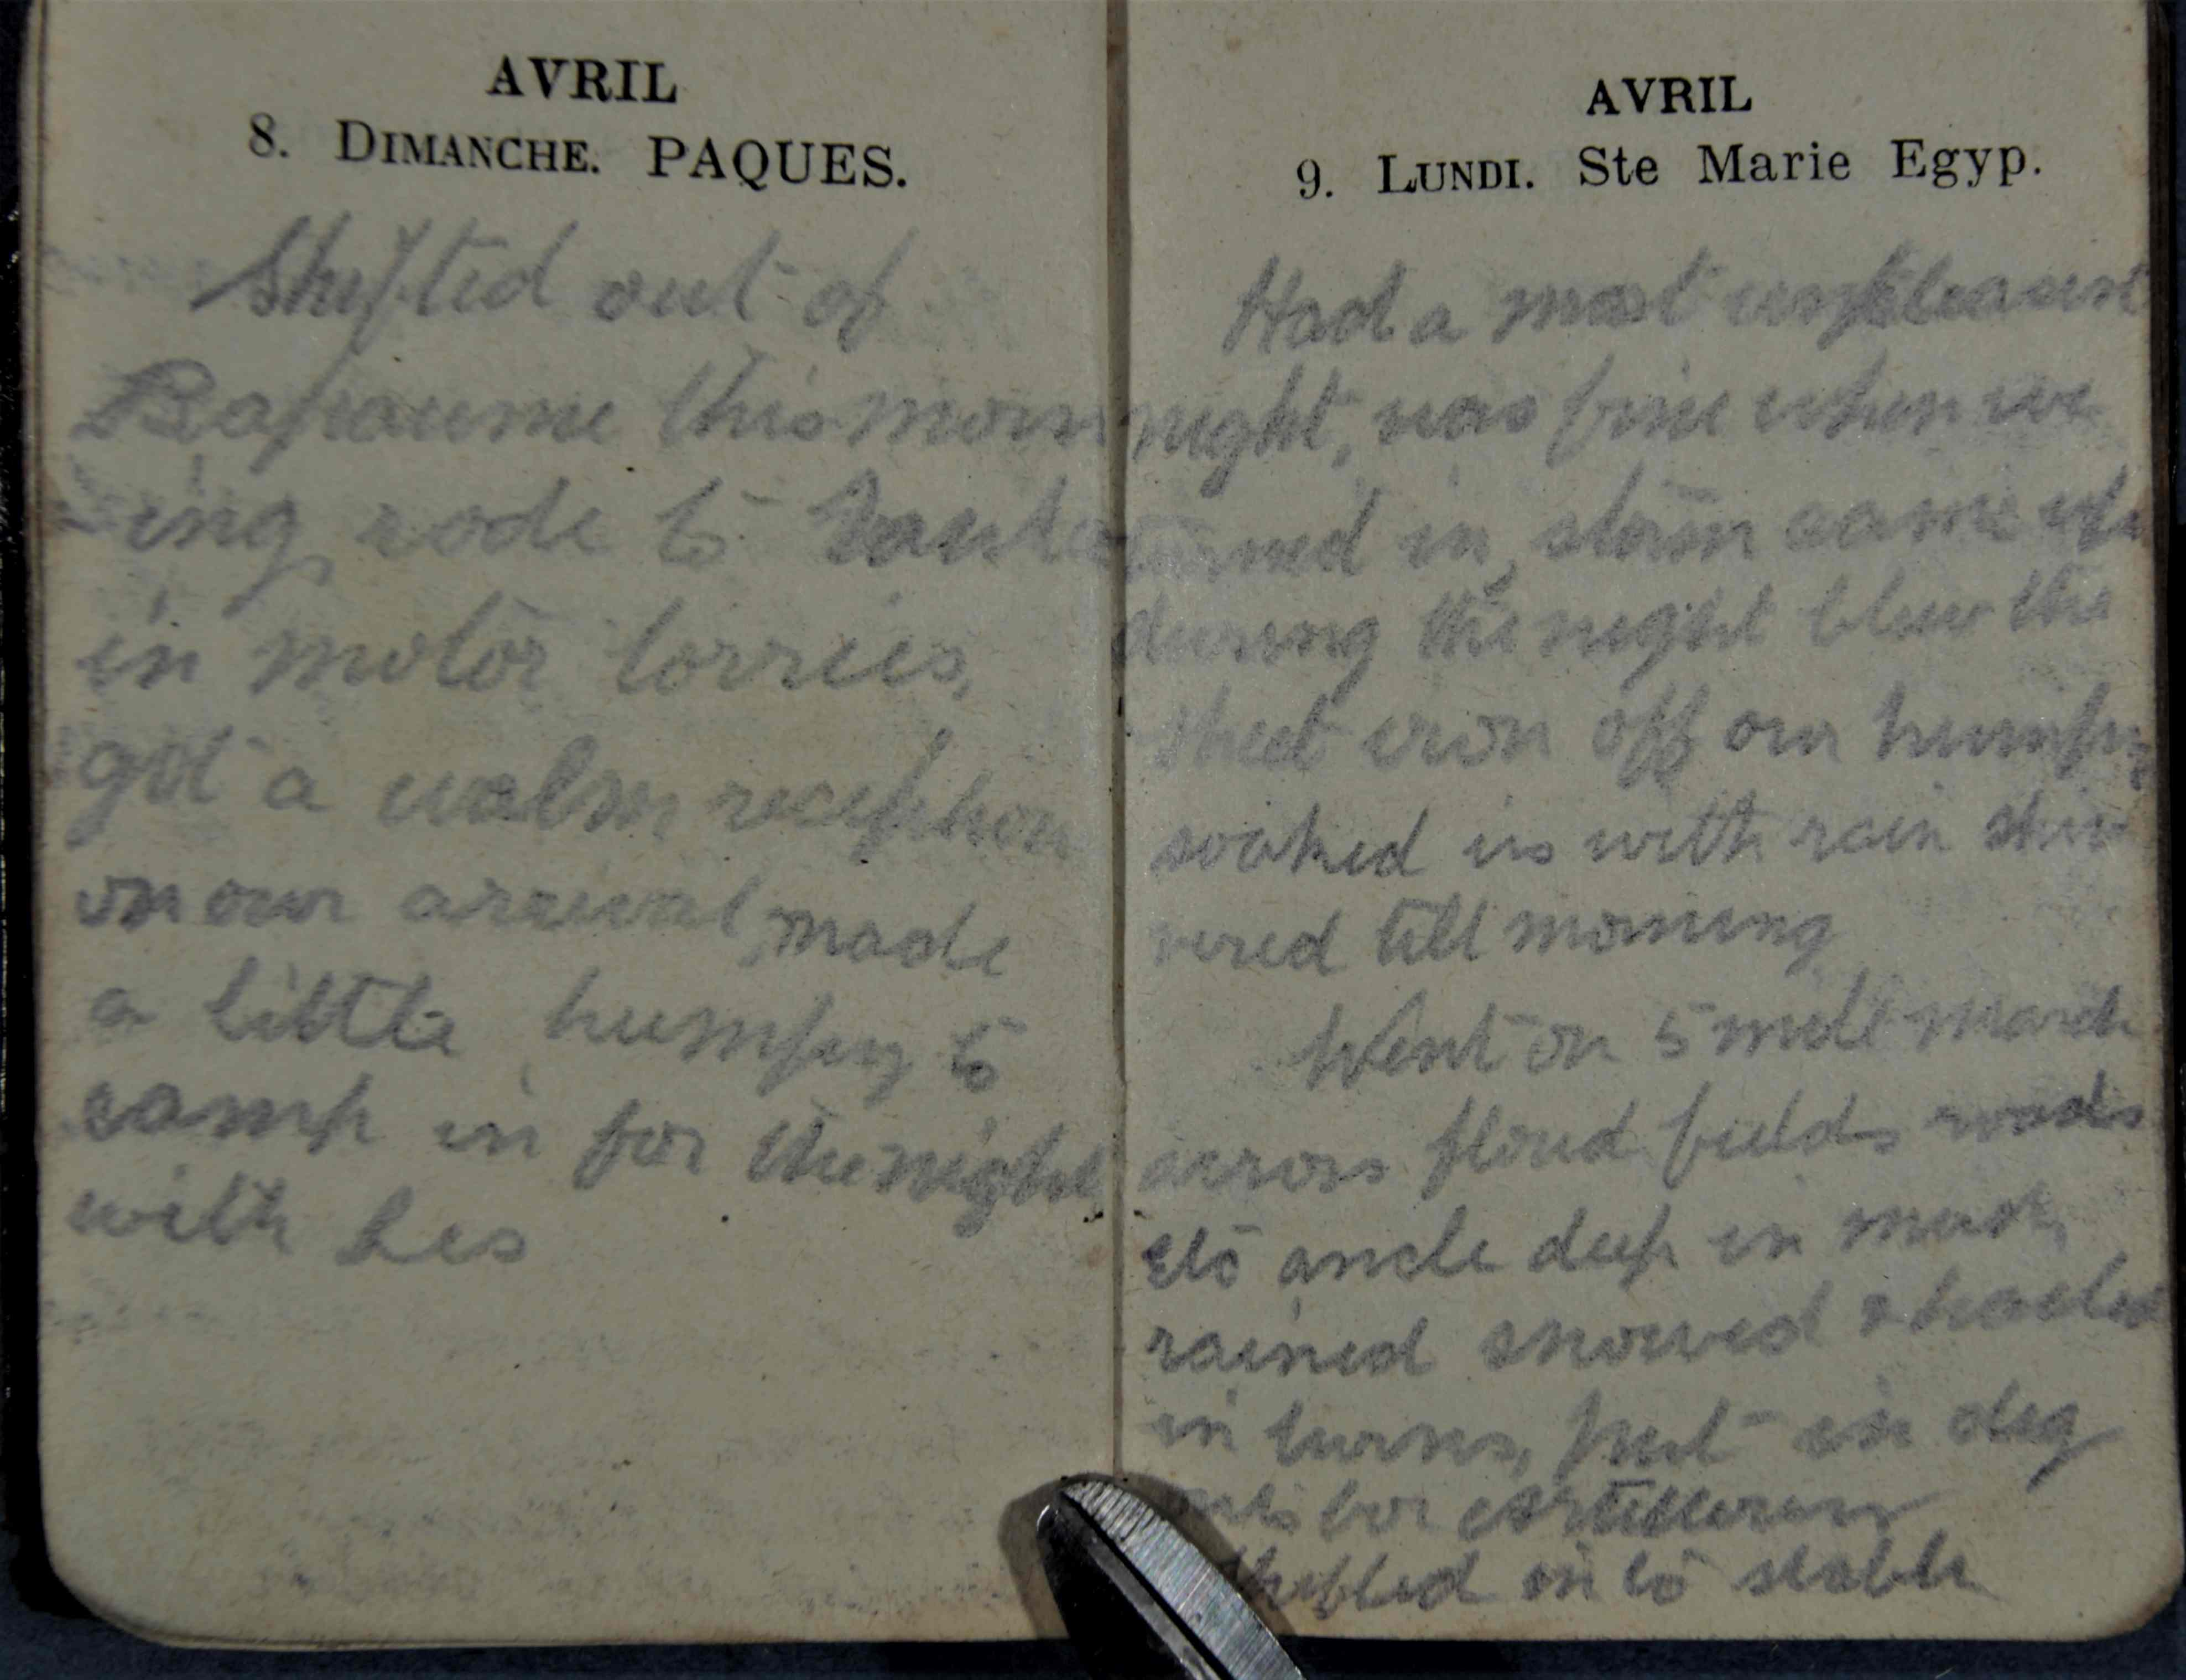 AVRIL
8. DIMANCHE. PAQUES.
Shifted out of
Bapaume this morn
ing rode to
in motor lorries,
got a walm reception
on our arrival, made
a little humpy to
camp in for the night
with Les
AVRIL
9. LUNDI. Ste Marie Egyp.
Had a most unpleasant
night, was fine when we
turned in, storm came up
during the night blew the
sheet iron off our humpy
soaked us with rain shiv
vered till morning
Went on 5 mile march
across ploud fields roads
etc ancle deep in mud,
rained snowed & hailed
in turns, put in dig
outs for Artillery
Shifted in to stable